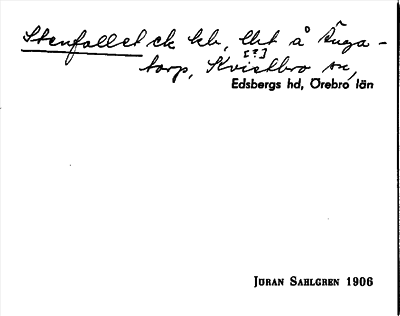 Stenfallet ck kb, lht å Ånga-
[?]
torp, Kvistbro sn,
Edsbergs hd, Örebro län
Jöran Sahlgren 1906